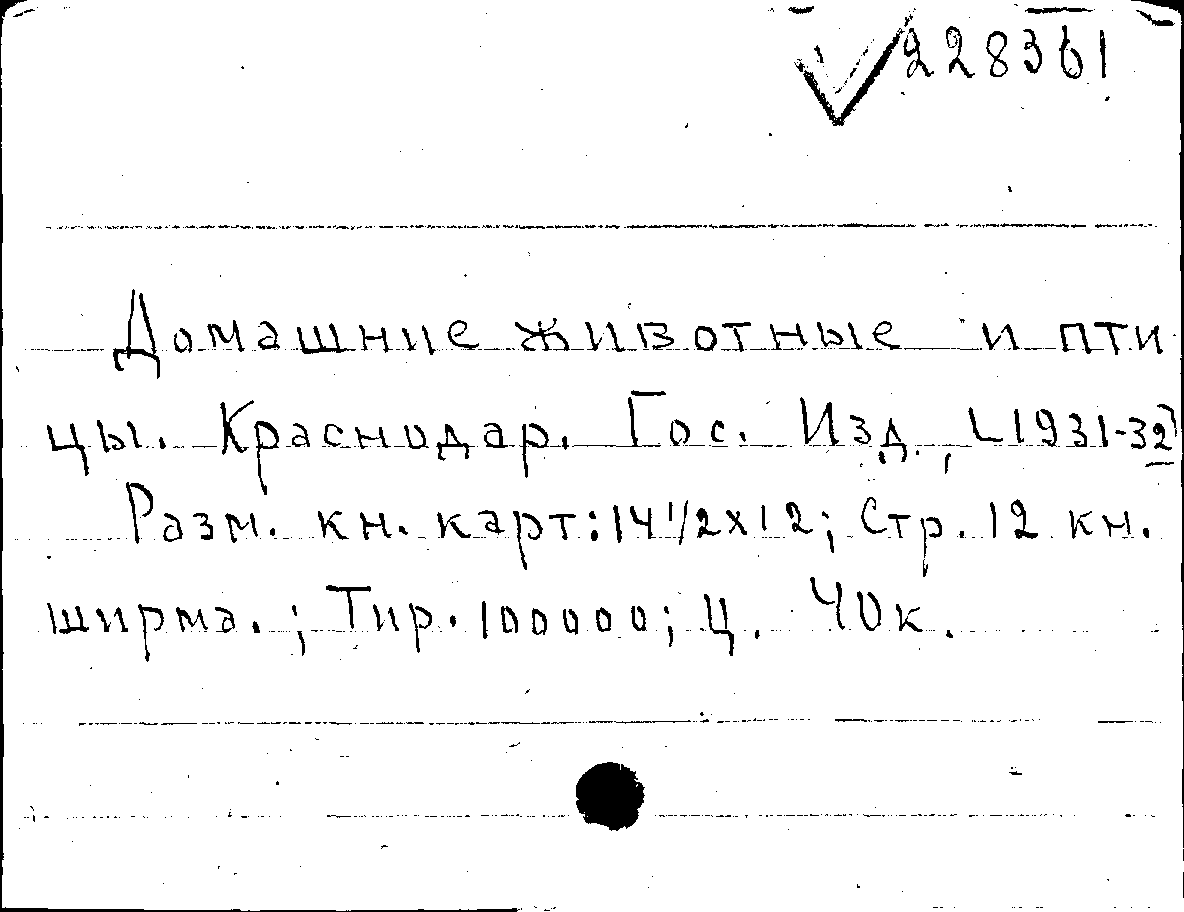 228361
Домашние животные и пти
цы. Краснодар. Гос. Изд., [1931-32]
Разм. кн. карт: 14 1/2х12; Стр. 12 кн.
ширма.; Тир. 100000; Ц. 40к.